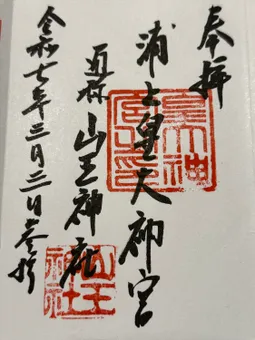 奉拝
浦上皇大神宮
山王神社
令和七年三月二日参拝
山王
神社